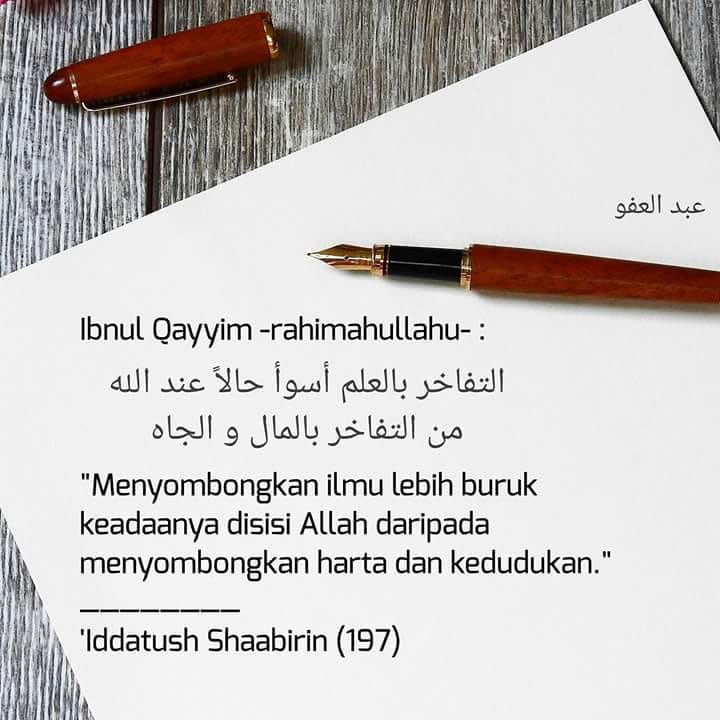 عبد العفو
Ibnul Qayyim -rahimahullahu- :
التفاخر بالعلم أسوأ حالاً عند الله
من التفاخر بالمال و الجاه
"Menyombongkan ilmu lebih buruk
keadaanya disisi Allah daripada
menyombongkan harta dan kedudukan."
________
'Iddatush Shaabirin (197)